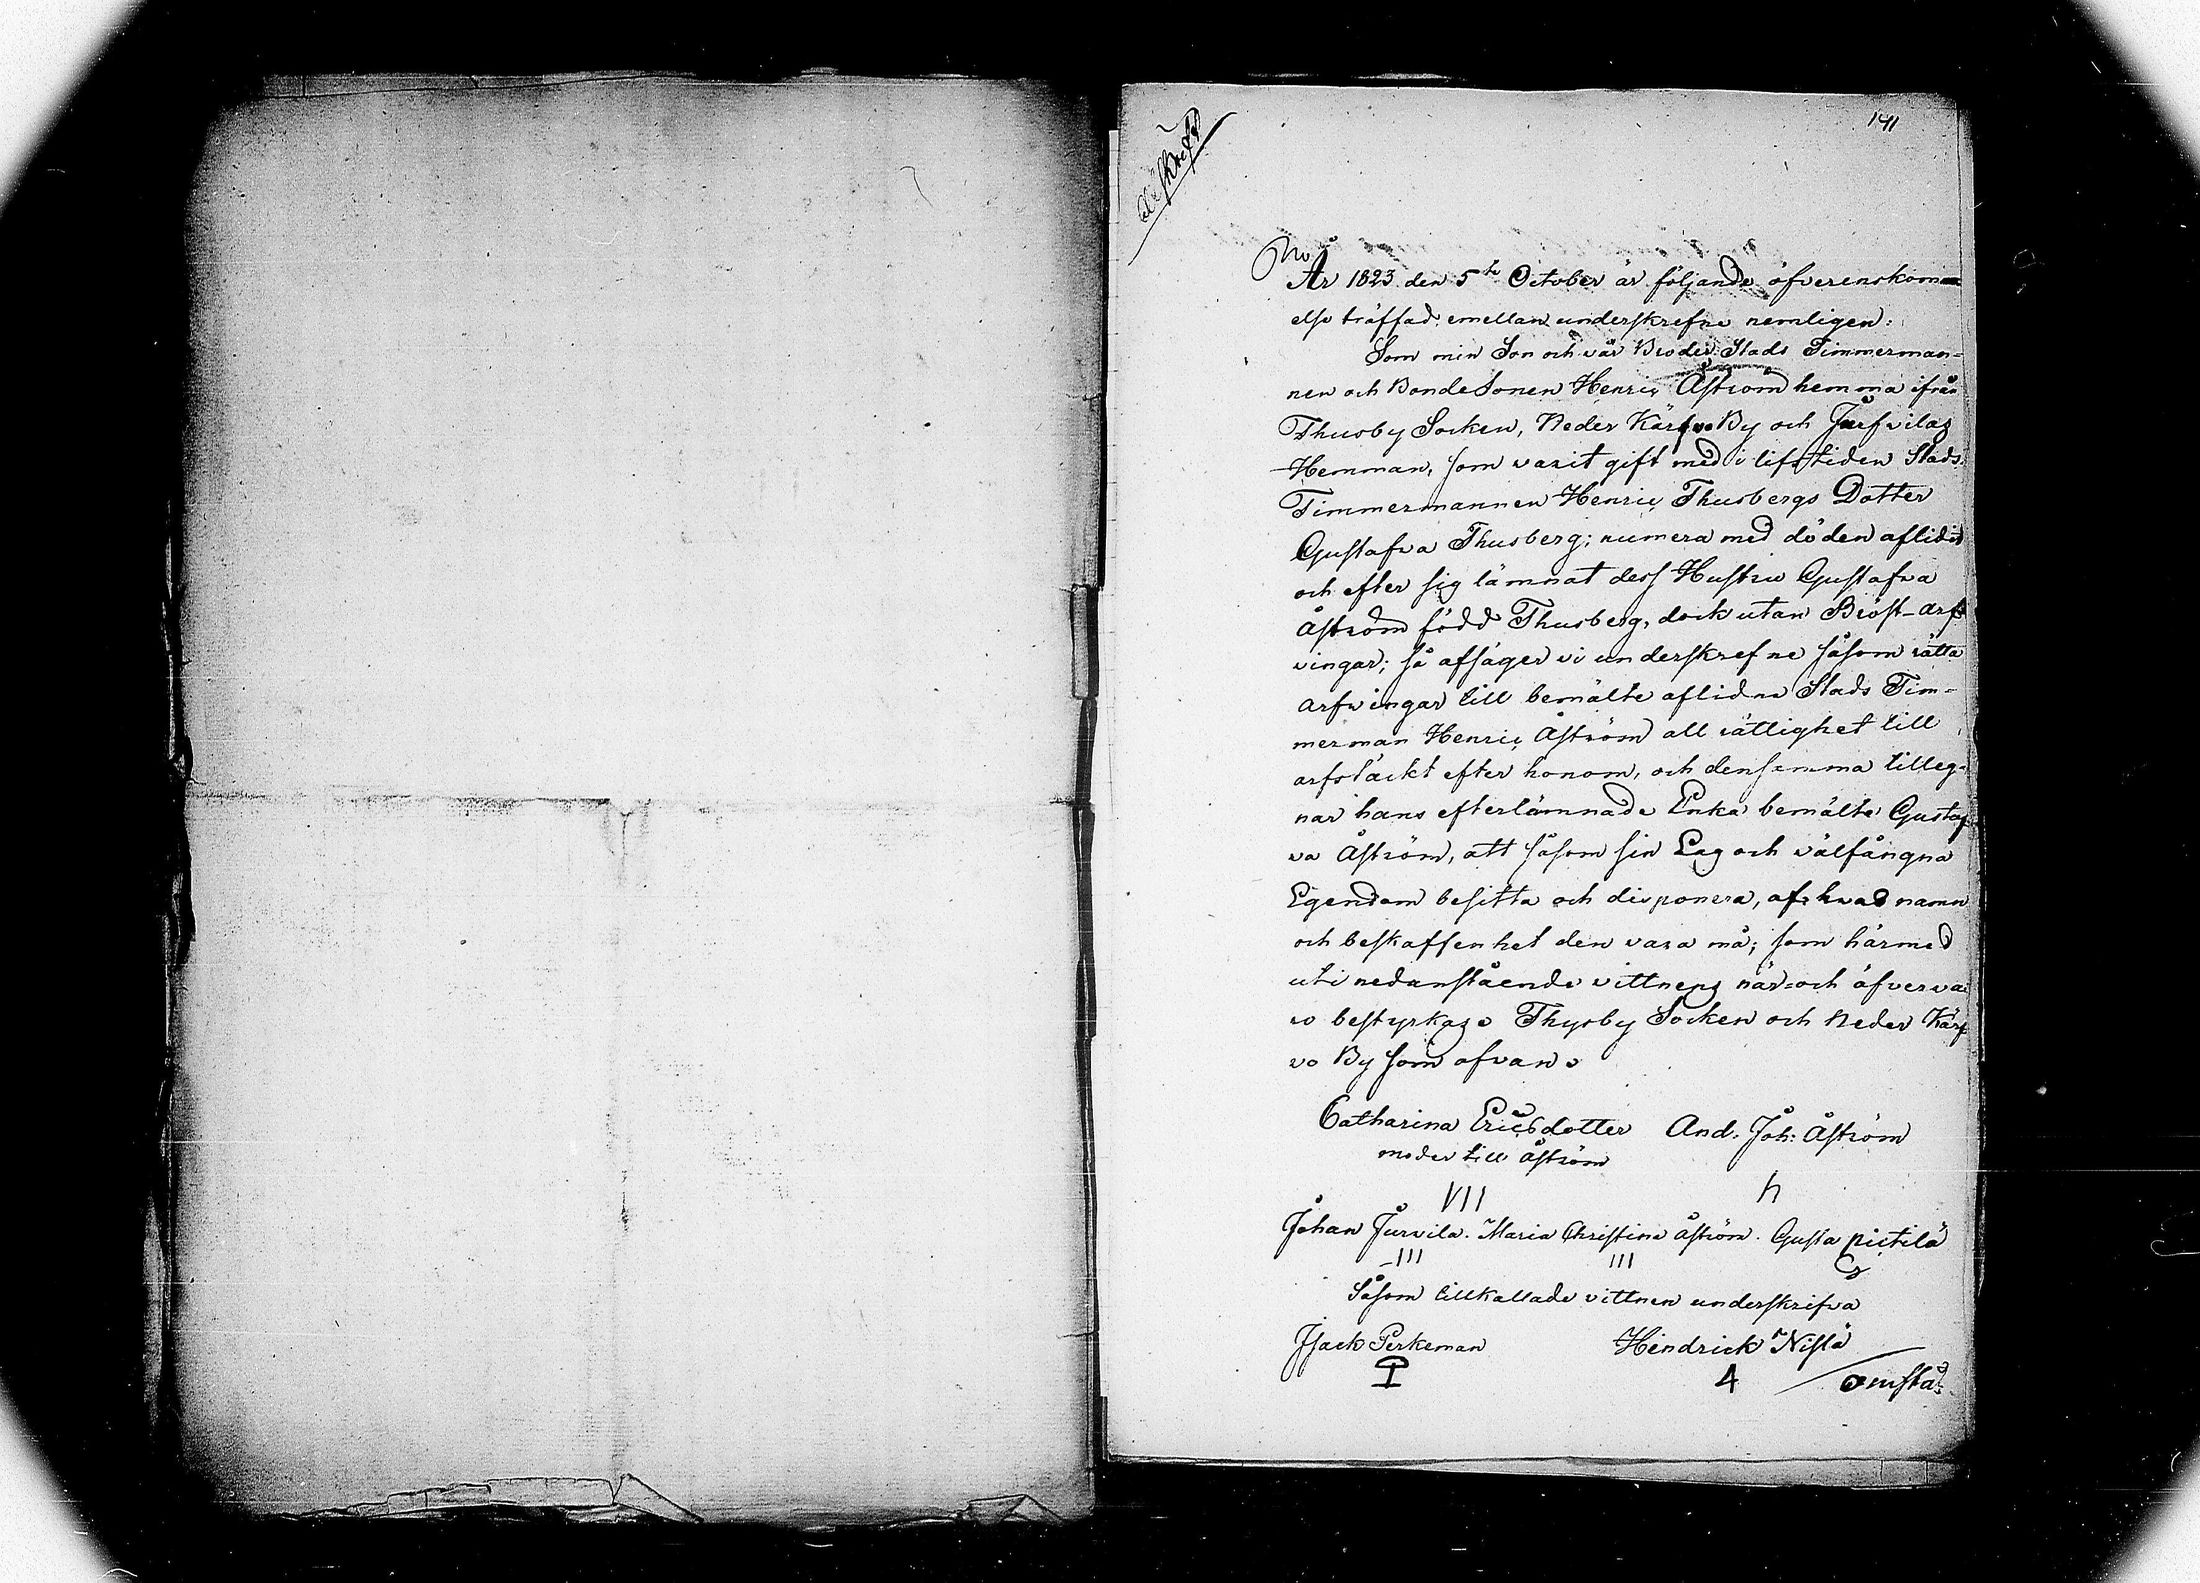 141
Afskrift
No
År 1823 den 5te October är följande öfverenskomm
else träffad emellan underskrefne nemligen:
Som min Son och vår Broder Stads Timmerman=
nen och BondeSonen Henric Åström hemma ifrån
Thusby Socken, Neder Kärfvo By och Jurfvilas
Hemman, som varit gift med i lifstiden Stads
Timmermannen Henric Thusbergs Dotter
Gustafva Thusberg; numera med döden aflidit
och efter sig lämnat dess Hustru Gustafva
Åström född Thusberg, dock utan Bröst-arf
vingar; så afsäger vi underskrefne såsom rätta
arfwingar till bemälte aflidne Stads Tim=
merman Henric Åström all rättighet till
arfstäckt efter honom, och densamma tilleg=
nar hans efterlämnade Enka bemälte Gustaf
va Åström, att såsom sin Lag och välfångna
Egendom besitta och disponera, af hvad namn
och beskaffenhet den vara må; som härmed
uti nedanstående vittnens när och öfverva
ro bestyrkas Thusby Socken och Neder Kärf
vo By som ofvan
Catharina Ericsdotter And. Joh: Åström
moder till Åström
VII h
Johan Jurvila. Maria Christina Åström. Gusta pietilä
III III
Såsom tillkallade vittnen underskrifva
Isack Perkeman Hindrick Nisla
4 omstå